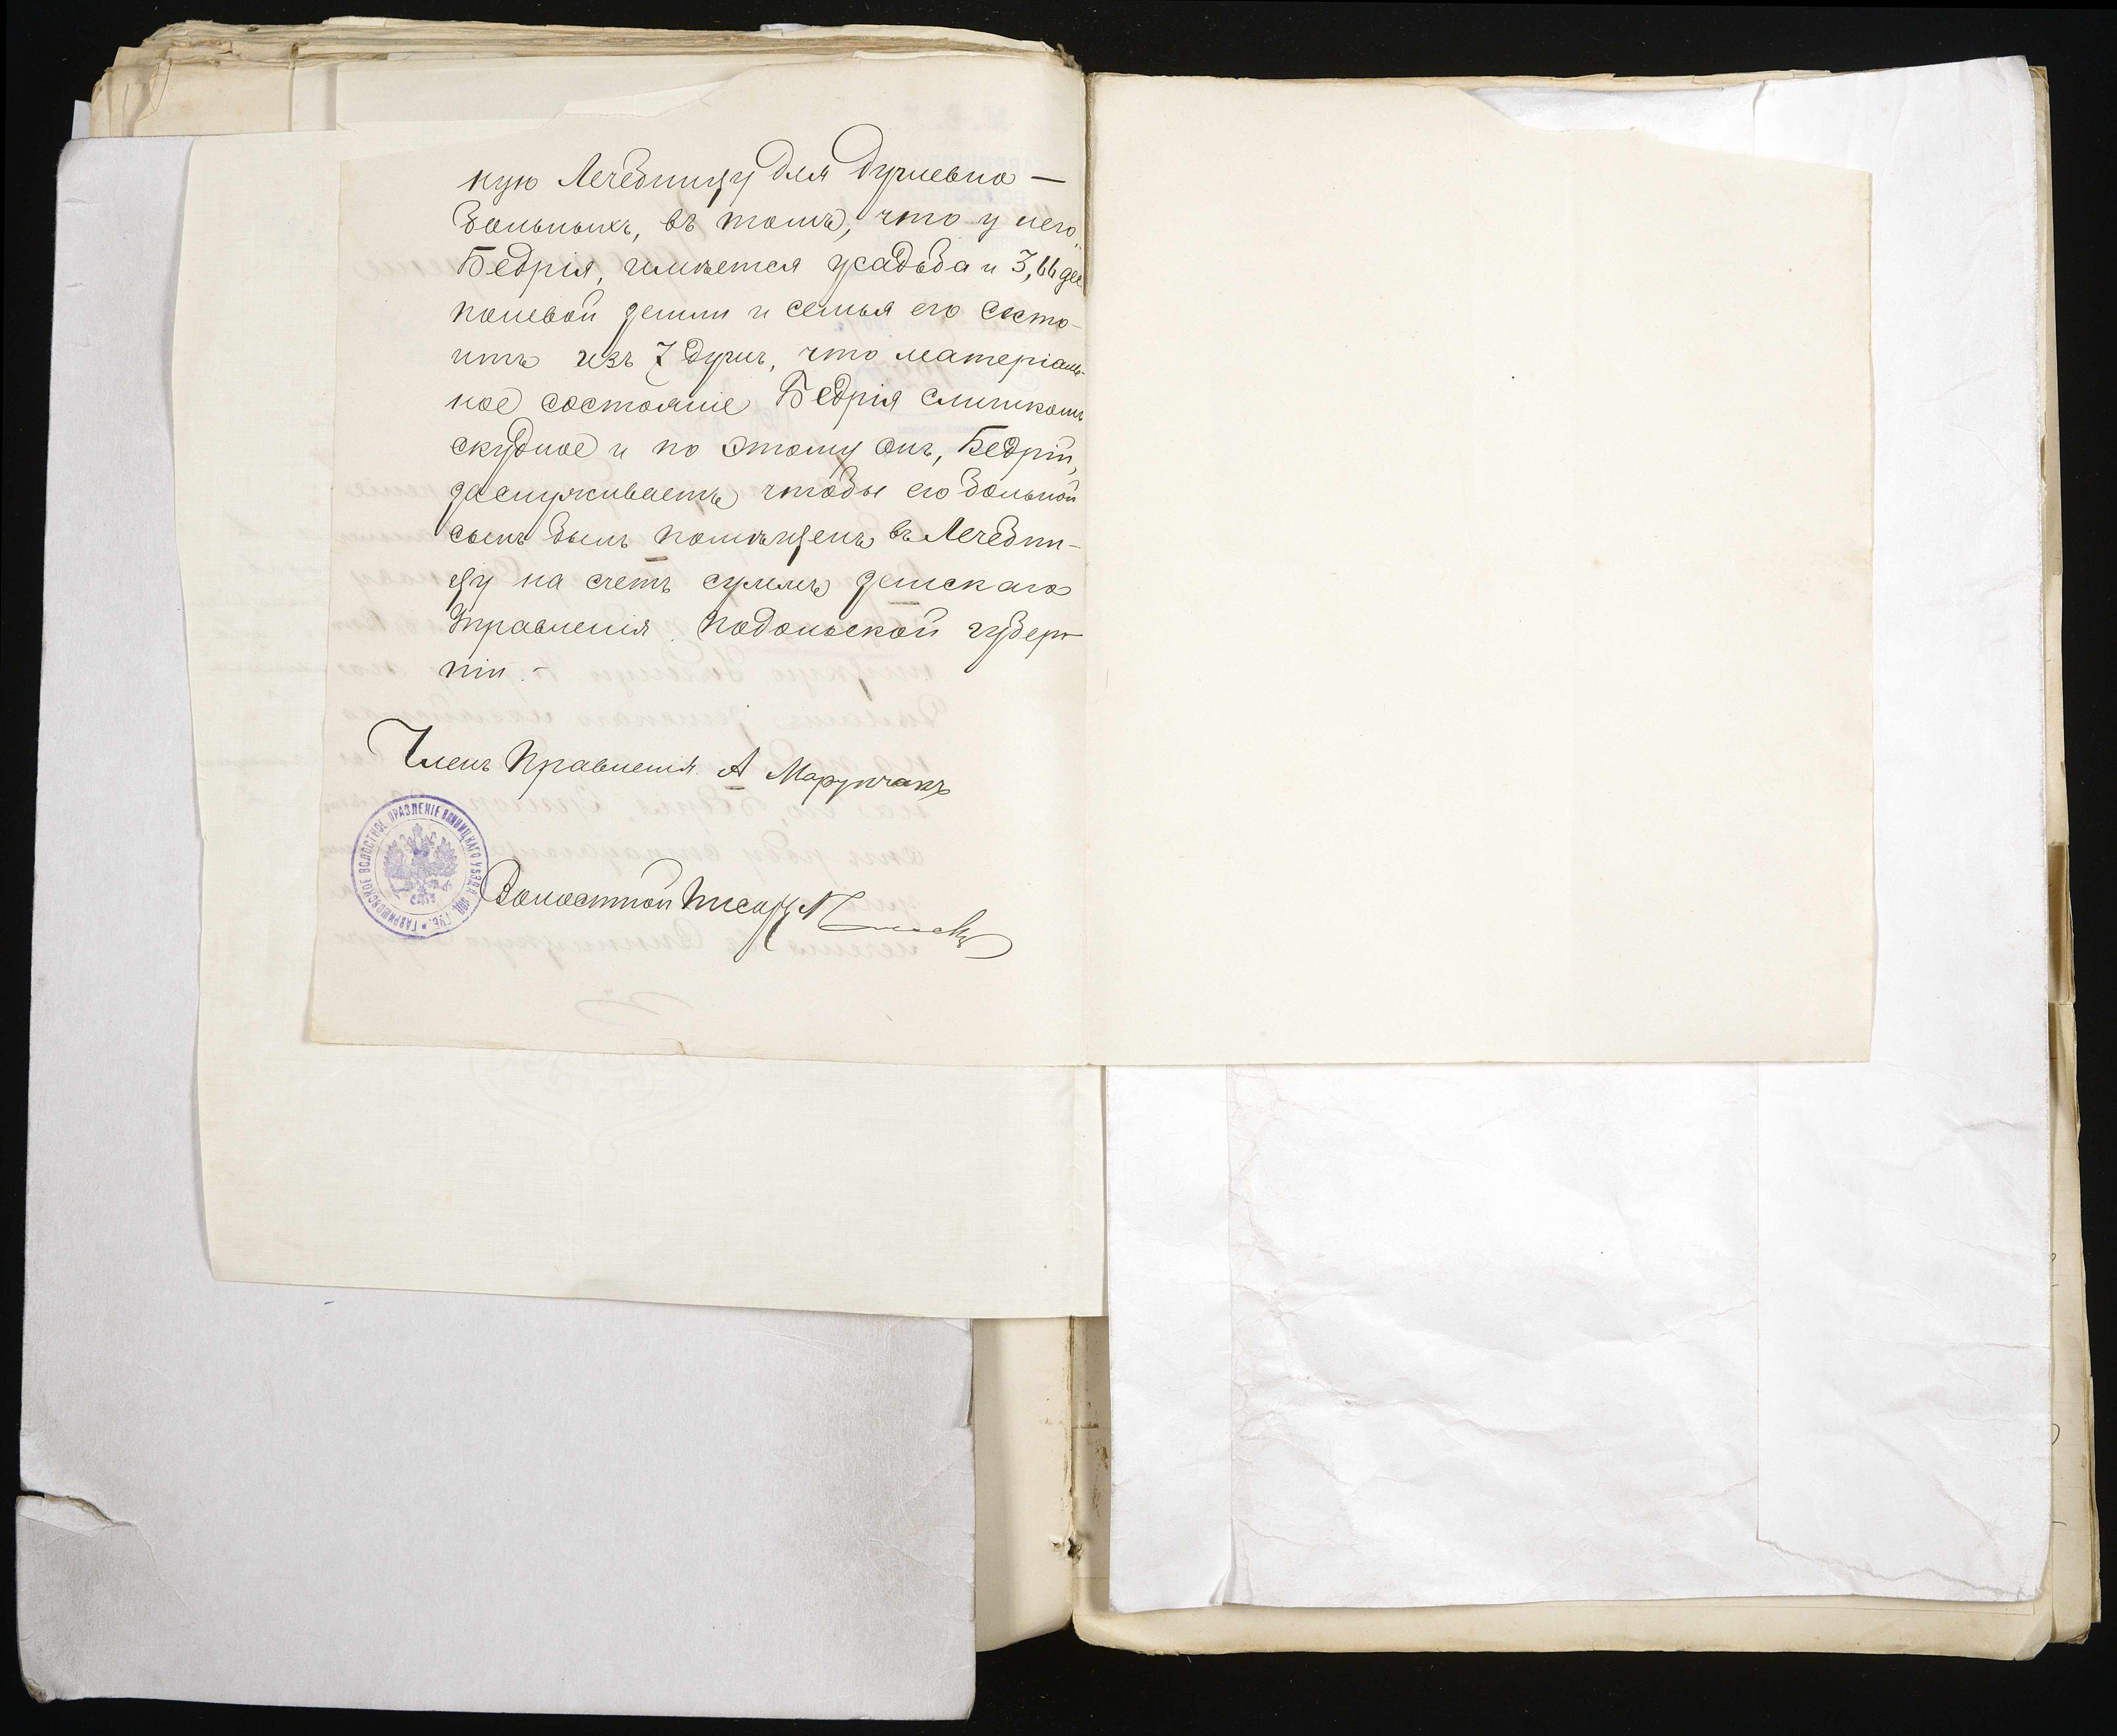 кую Лечебницу для душевно—
больныхъ, въ томъ, что у него,
Бедрія, имѣется усадьба и 3,66 дес
полевой земли и семья его состо-
итъ изъ 7 душъ, что матеріаль-
ное состояніе Бедрія слишкомъ
скудное и по этому онъ, Бедрій,
заслуживаетъ чтобы его больной
сынъ былъ помѣщенъ въ Лечебни-
цу на счетъ суммъ земскаго
Управленія Подольской губер-
ніи.-
Членъ Правленія А Марунчакъ
ГАВРИШОВСКОЕ ВОЛОСТНОЕ ПРАВЛЕНІЕ ВИННИЦКАГО УѢЗДА ПОД. ГУБ.
Волостной Писарь